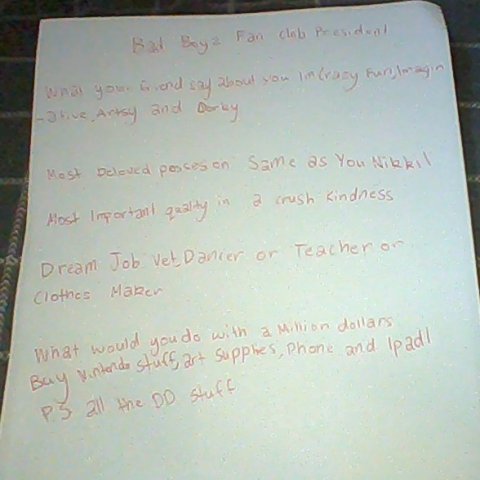 Bad Boyz Fan Club President
What your friend say about you Im Crazy Fun, Imagin
-ative, Artsy and Dorky
Most Beloved posseson Same as You Nikki!
Most Important quality in a crush Kindness
Dream Job Vet, Dancer or Teacher or
Clothes Maker
What would you do with a Million dollars
Buy Nintendo stuff, art supplies, Phone and Ipad!
P.S all the DD stuff